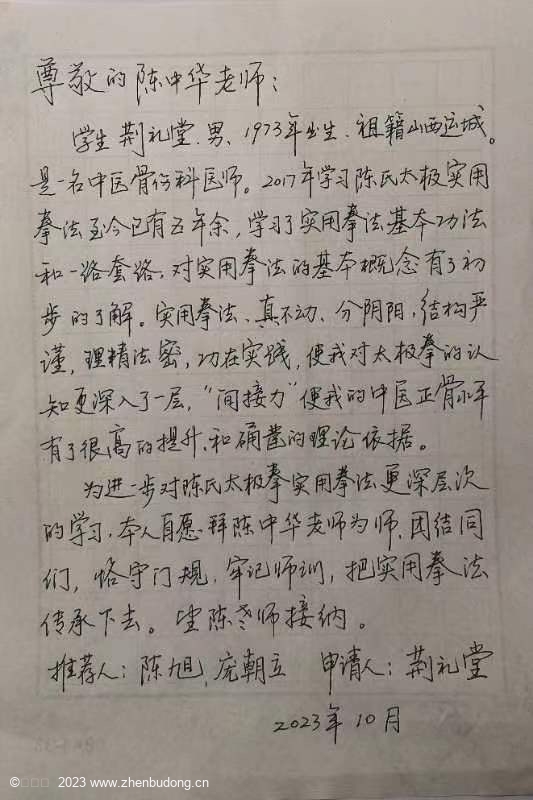 尊敬的陈中华老师：
学生荆礼堂.男、1973年出生.祖籍山西运城。
是一名中医骨伤科医师。2017年学习陈氏太极实用
拳法至今已有五年余，学习了实用拳法基本功法
和一路套路.对实用拳法的基本概念有了初
步的了解。实用拳法、真不动、分阴阳，结构严
谨，理精法密，功在实践，使我对太极拳的认
知更深入了一层，“间接力”使我的中医正骨水平
有了很高的提升、和确凿的理论依据。
为进一步对陈氏太极拳实用拳法更深层次
的学习.本人自愿拜陈中华老师为师.团结同
们，恪守门规，牢记师训，把实用拳法
传承下去。望陈老师接纳。
推荐人：陈旭、庞朝立 申请人：荆礼堂
2023年10月
© 2023 www.zhenbudong.cn